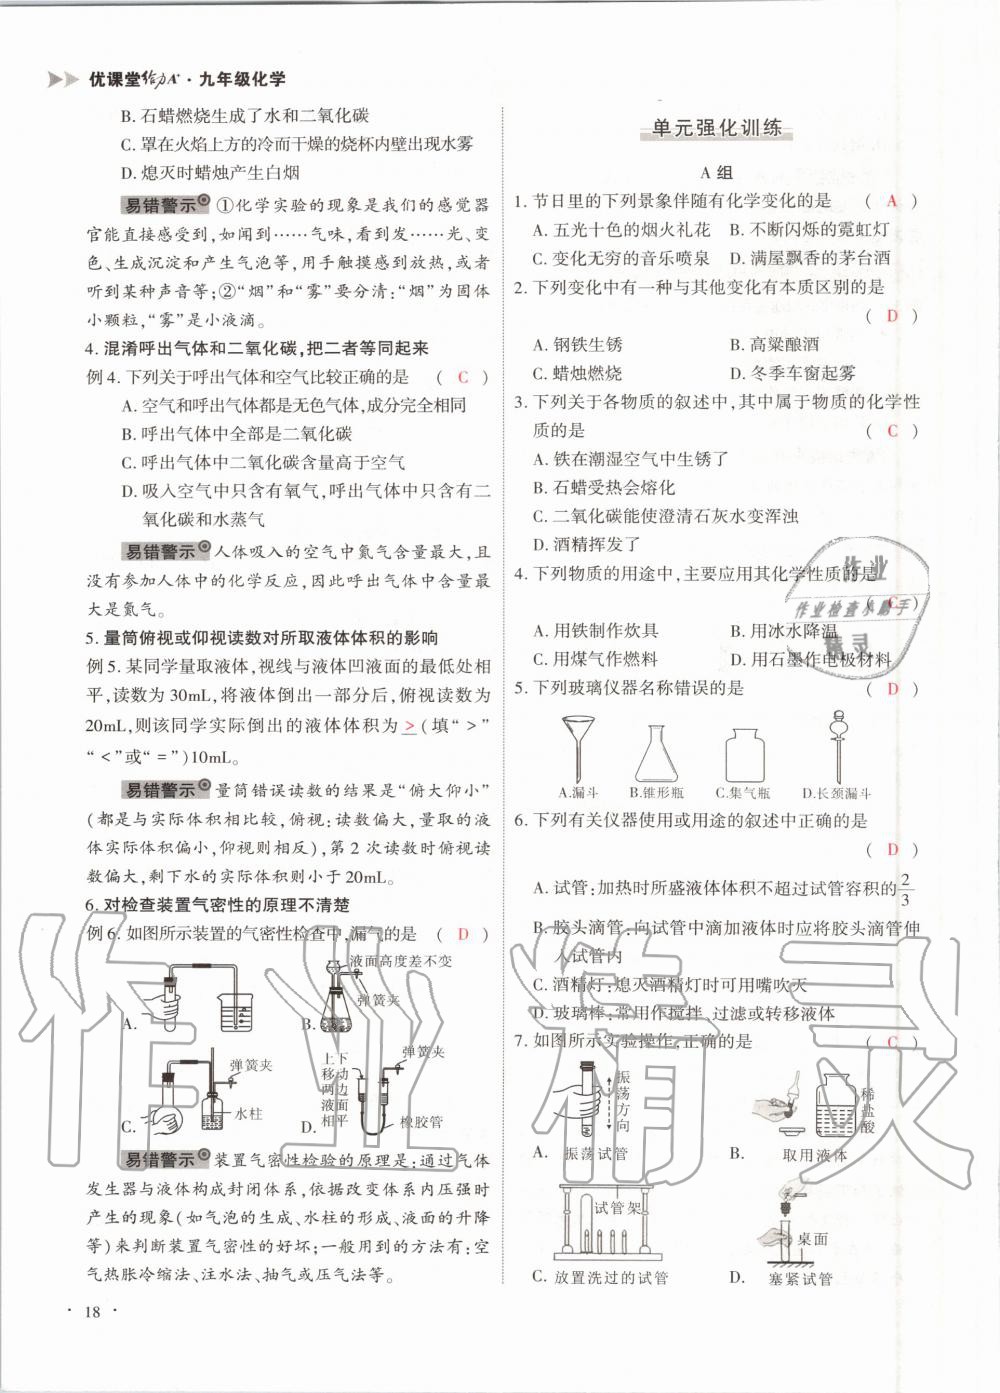 优课堂给力A+·九年级化学
B. 石蜡燃烧生成了水和二氧化碳
C. 罩在火焰上方的冷而干燥的烧杯内壁出现水雾
D. 熄灭时蜡烛产生白烟
易错警示 ①化学实验的现象是我们的感觉器
官能直接感受到,如闻到……气味,看到发……光、变
色、生成沉淀和产生气泡等,用手触摸感到放热,或者
听到某种声音等;②“烟”和“雾”要分清:“烟”为固体
小颗粒,“雾”是小液滴。
4. 混淆呼出气体和二氧化碳,把二者等同起来
例 4. 下列关于呼出气体和空气比较正确的是 ( C )
A. 空气和呼出气体都是无色气体,成分完全相同
B. 呼出气体中全部是二氧化碳
C. 呼出气体中二氧化碳含量高于空气
D. 吸入空气中只含有氧气,呼出气体中只含有二
氧化碳和水蒸气
易错警示 人体吸入的空气中氮气含量最大,且
没有参加人体中的化学反应,因此呼出气体中含量最
大是氮气。
5. 量筒俯视或仰视读数对所取液体体积的影响
例 5. 某同学量取液体,视线与液体凹液面的最低处相
平,读数为 30mL,将液体倒出一部分后,俯视读数为
20mL,则该同学实际倒出的液体体积为 > (填“＞”
“＜”或“＝”)10mL。
易错警示 量筒错误读数的结果是“俯大仰小”
(都是与实际体积相比较,俯视:读数偏大,量取的液
体实际体积偏小,仰视则相反),第 2 次读数时俯视读
数偏大,剩下水的实际体积则小于 20mL。
6. 对检查装置气密性的原理不清楚
例 6. 如图所示装置的气密性检查中,漏气的是 ( D )
液面高度差不变
弹簧夹
A.
B.
弹簧夹
水柱
C.
上下
移动
两边
液面
相平
弹簧夹
橡胶管
D.
易错警示 装置气密性检验的原理是:通过气体
发生器与液体构成封闭体系,依据改变体系内压强时
产生的现象(如气泡的生成、水柱的形成、液面的升降
等)来判断装置气密性的好坏;一般用到的方法有:空
气热胀冷缩法、注水法、抽气或压气法等。
· 18 ·
单元强化训练
A 组
1. 节日里的下列景象伴随有化学变化的是 ( A )
A. 五光十色的烟火礼花 B. 不断闪烁的霓虹灯
C. 变化无穷的音乐喷泉 D. 满屋飘香的茅台酒
2. 下列变化中有一种与其他变化有本质区别的是
( D )
A. 钢铁生锈 B. 高粱酿酒
C. 蜡烛燃烧 D. 冬季车窗起雾
3. 下列关于各物质的叙述中,其中属于物质的化学性
质的是 ( C )
A. 铁在潮湿空气中生锈了
B. 石蜡受热会熔化
C. 二氧化碳能使澄清石灰水变浑浊
D. 酒精挥发了
4. 下列物质的用途中,主要应用其化学性质的是
( C )
A. 用铁制作炊具 B. 用冰水降温
C. 用煤气作燃料 D. 用石墨作电极材料
5. 下列玻璃仪器名称错误的是 ( D )
A.漏斗 B.锥形瓶 C.集气瓶 D.长颈漏斗
6. 下列有关仪器使用或用途的叙述中正确的是
( D )
A. 试管:加热时所盛液体体积不超过试管容积的2/3
B. 胶头滴管:向试管中滴加液体时应将胶头滴管伸
入试管内
C. 酒精灯:熄灭酒精灯时可用嘴吹灭
D. 玻璃棒:常用作搅拌、过滤或转移液体
7. 如图所示实验操作,正确的是 ( C )
振荡方向
A. 振荡试管
稀盐酸
B. 取用液体
试管架
C. 放置洗过的试管
桌面
D. 塞紧试管
作业
作业检查小助手
精灵
作业精灵